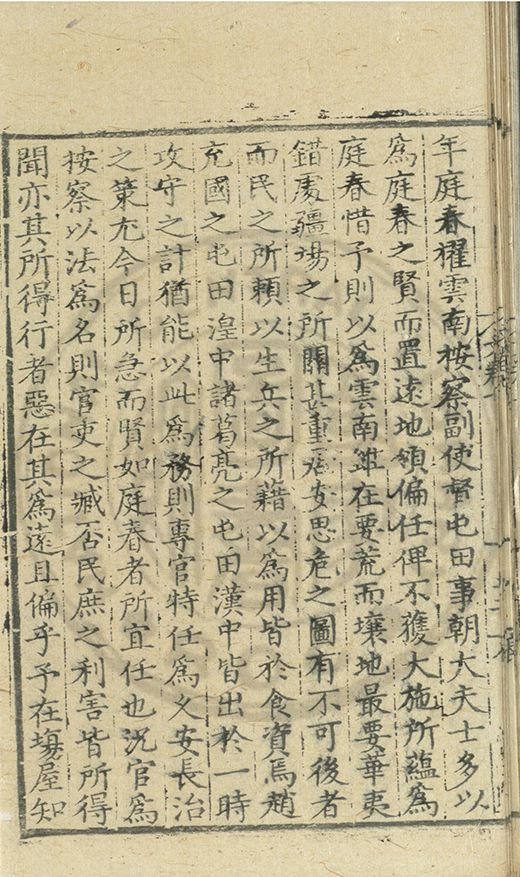 年庭春擢雲南按察副使督屯田事朝大夫士多以
爲庭春之賢而置遠地領偏任俾不獲大施所蘊爲
庭春惜予則以爲雲南雖在要荒而壤地最要華夷
錯處疆場之所關甚重居安思危之圖有不可後者
而民之所賴以生兵之所藉以爲用皆於食資焉趙
充國之屯田湟中諸葛亮之屯田漢中皆出於一時
攻守之計猶能以此爲務則專官特任爲久安長治
之策尤今日所急而賢如庭春者所宜任也况官爲
按察以法爲名則官吏之臧否民庶之利害皆所得
聞亦其所得行者惡在其爲遠且偏乎予在塲屋知